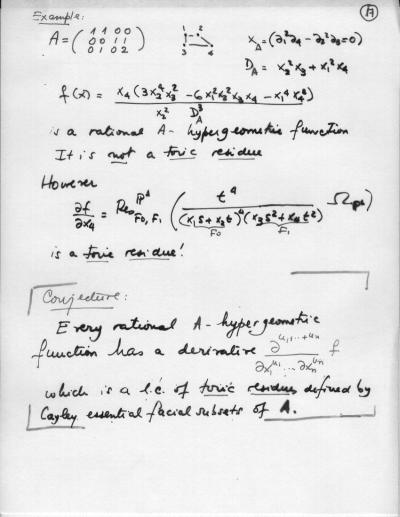 Example:
A = ( 1 1 0 0
0 0 1 1
0 1 0 2 )
1 2
3 4
X_A = (∂₁²∂₄ − ∂₂²∂₃ = 0)
D_A = x₂²x₃ + x₁²x₄
f(x) = x₄(3x₂⁴x₃² − 6x₁²x₂²x₃x₄ − x₁⁴x₄²) / x₂² D_A³
is a rational A-hypergeometric function
It is not a toric residue
However
∂f/∂x₄ = Res^{P¹}_{F0,F1} ( t⁴ / (x₁s+x₂t)⁴(x₃s²+x₄t²) Ω_{P¹} )
F0 F1
is a toric residue!
Conjecture:
Every rational A-hypergeometric
function has a derivative ∂^{u₁+...+uₙ} / ∂x₁^{u₁}...∂xₙ^{uₙ} f
which is a l.c. of toric residues defined by
Cayley essential facial subsets of A.